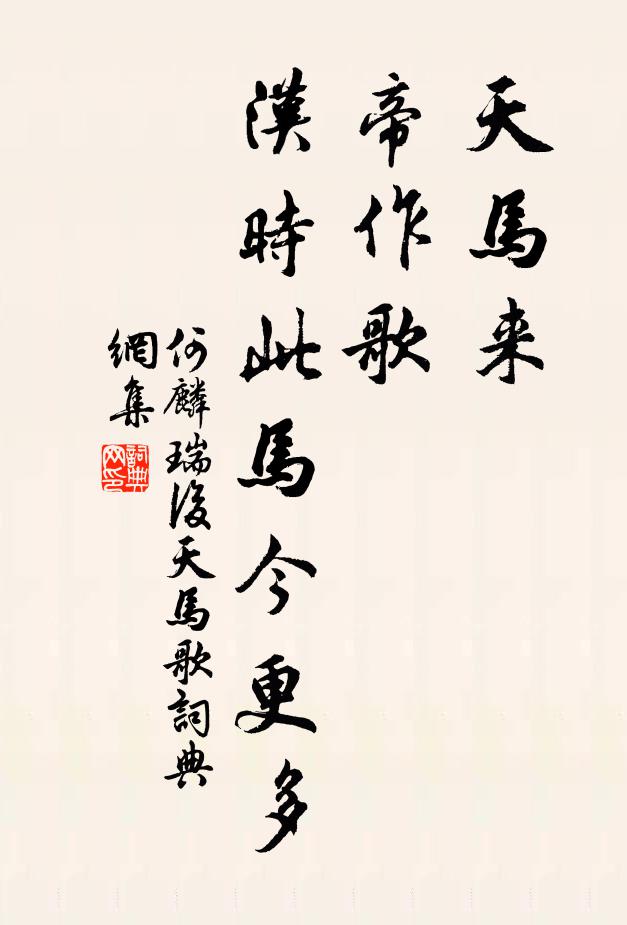 天馬来
帝作歌
漢時此馬今更多
何麟瑞後天馬歌詞典
網集
詞典
网印